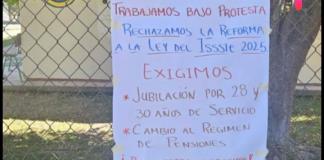 Trabajamos bajo protesta
Rechazamos la Reforma
a la Ley del Issste 2025
Exigimos
* Jubilación por 28 y
30 años de servicio
* Cambio al Régimen
de Pensiones